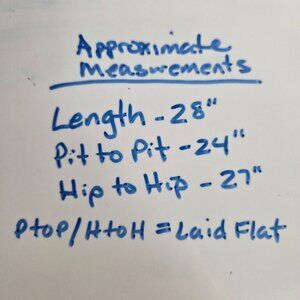 Approximate
Measurements
Length - 28"
Pit to Pit - 24"
Hip to Hip - 27"
PtoP/HtoH = Laid Flat